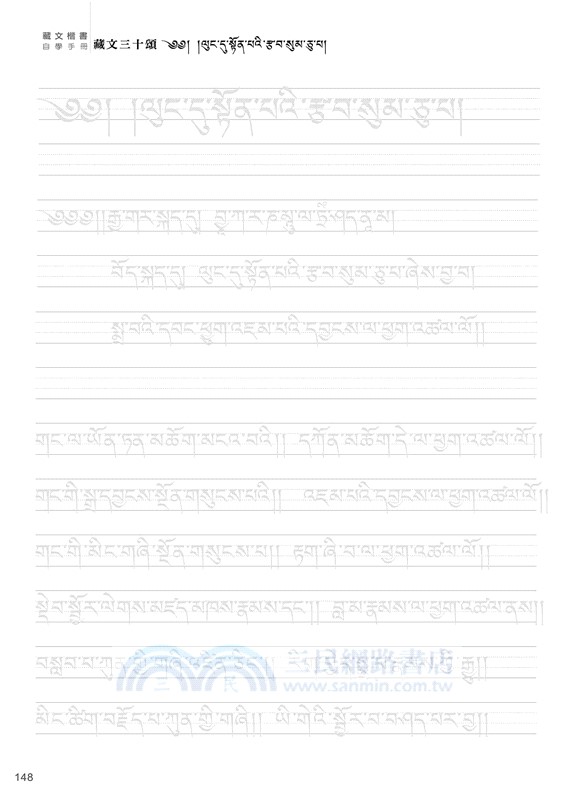 藏文楷書
自學手冊 藏文三十頌 ༄༅། །ལུང་དུ་སྟོན་པའི་རྩ་བ་སུམ་ཅུ་པ།
༄༅། །ལུང་དུ་སྟོན་པའི་རྩ་བ་སུམ་ཅུ་པ།
༄༅༅།།རྒྱ་གར་སྐད་དུ།
བོད་སྐད་དུ། ལུང་དུ་སྟོན་པའི་རྩ་བ་སུམ་ཅུ་པ་ཞེས་བྱ་བ།
སྨྲ་བའི་དབང་ཕྱུག་འཇམ་པའི་དབྱངས་ལ་ཕྱག་འཚལ་ལོ།།
གང་ལ་ཡོན་ཏན་མཆོག་མངའ་བའི།། དཀོན་མཆོག་དེ་ལ་ཕྱག་འཚལ་ལོ།།
གང་གི་སྒྲ་དབྱངས་སྔོན་གསུངས་པའི།། འཇམ་པའི་དབྱངས་ལ་ཕྱག་འཚལ་ལོ།།
གང་གི་མིང་གཞི་སྔོན་གསུངས་པ།། རྟག་ཞི་བ་ལ་ཕྱག་འཚལ་ལོ།།
སྡེབ་སྦྱོར་ལེགས་མཛད་མཁས་རྣམས་དང་།། བླ་མ་རྣམས་ལ་ཕྱག་འཚལ་ནས།།
བསླབ་པ་ཀུན་གྱི་གཞི་འཛིན་ཅིང་།།
མིང་ཚིག་བརྗོད་པ་ཀུན་གྱི་གཞི།། ཡི་གེའི་སྦྱོར་བ་བཤད་པར་བྱ།།
三民網路書店
三民
www.sanmin.com.tw
148